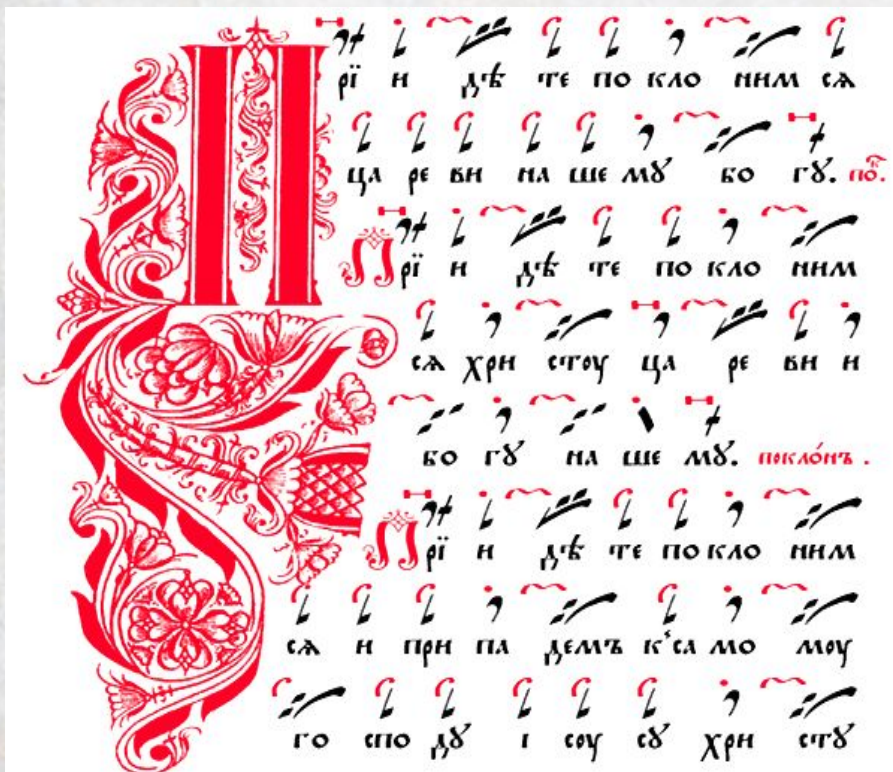 Прї и дѣ те по кло ним сѧ
ца ре ви на ше мꙋ бо гꙋ. по́к.
Прї и дѣ те по кло ним
сѧ хри стоу ца ре ви и
бо гꙋ на ше мꙋ. покло́нъ .
Прї и дѣ те по кло ним
сѧ и при па демъ к’са мо моу
го спо дꙋ і соу сꙋ хри стꙋ